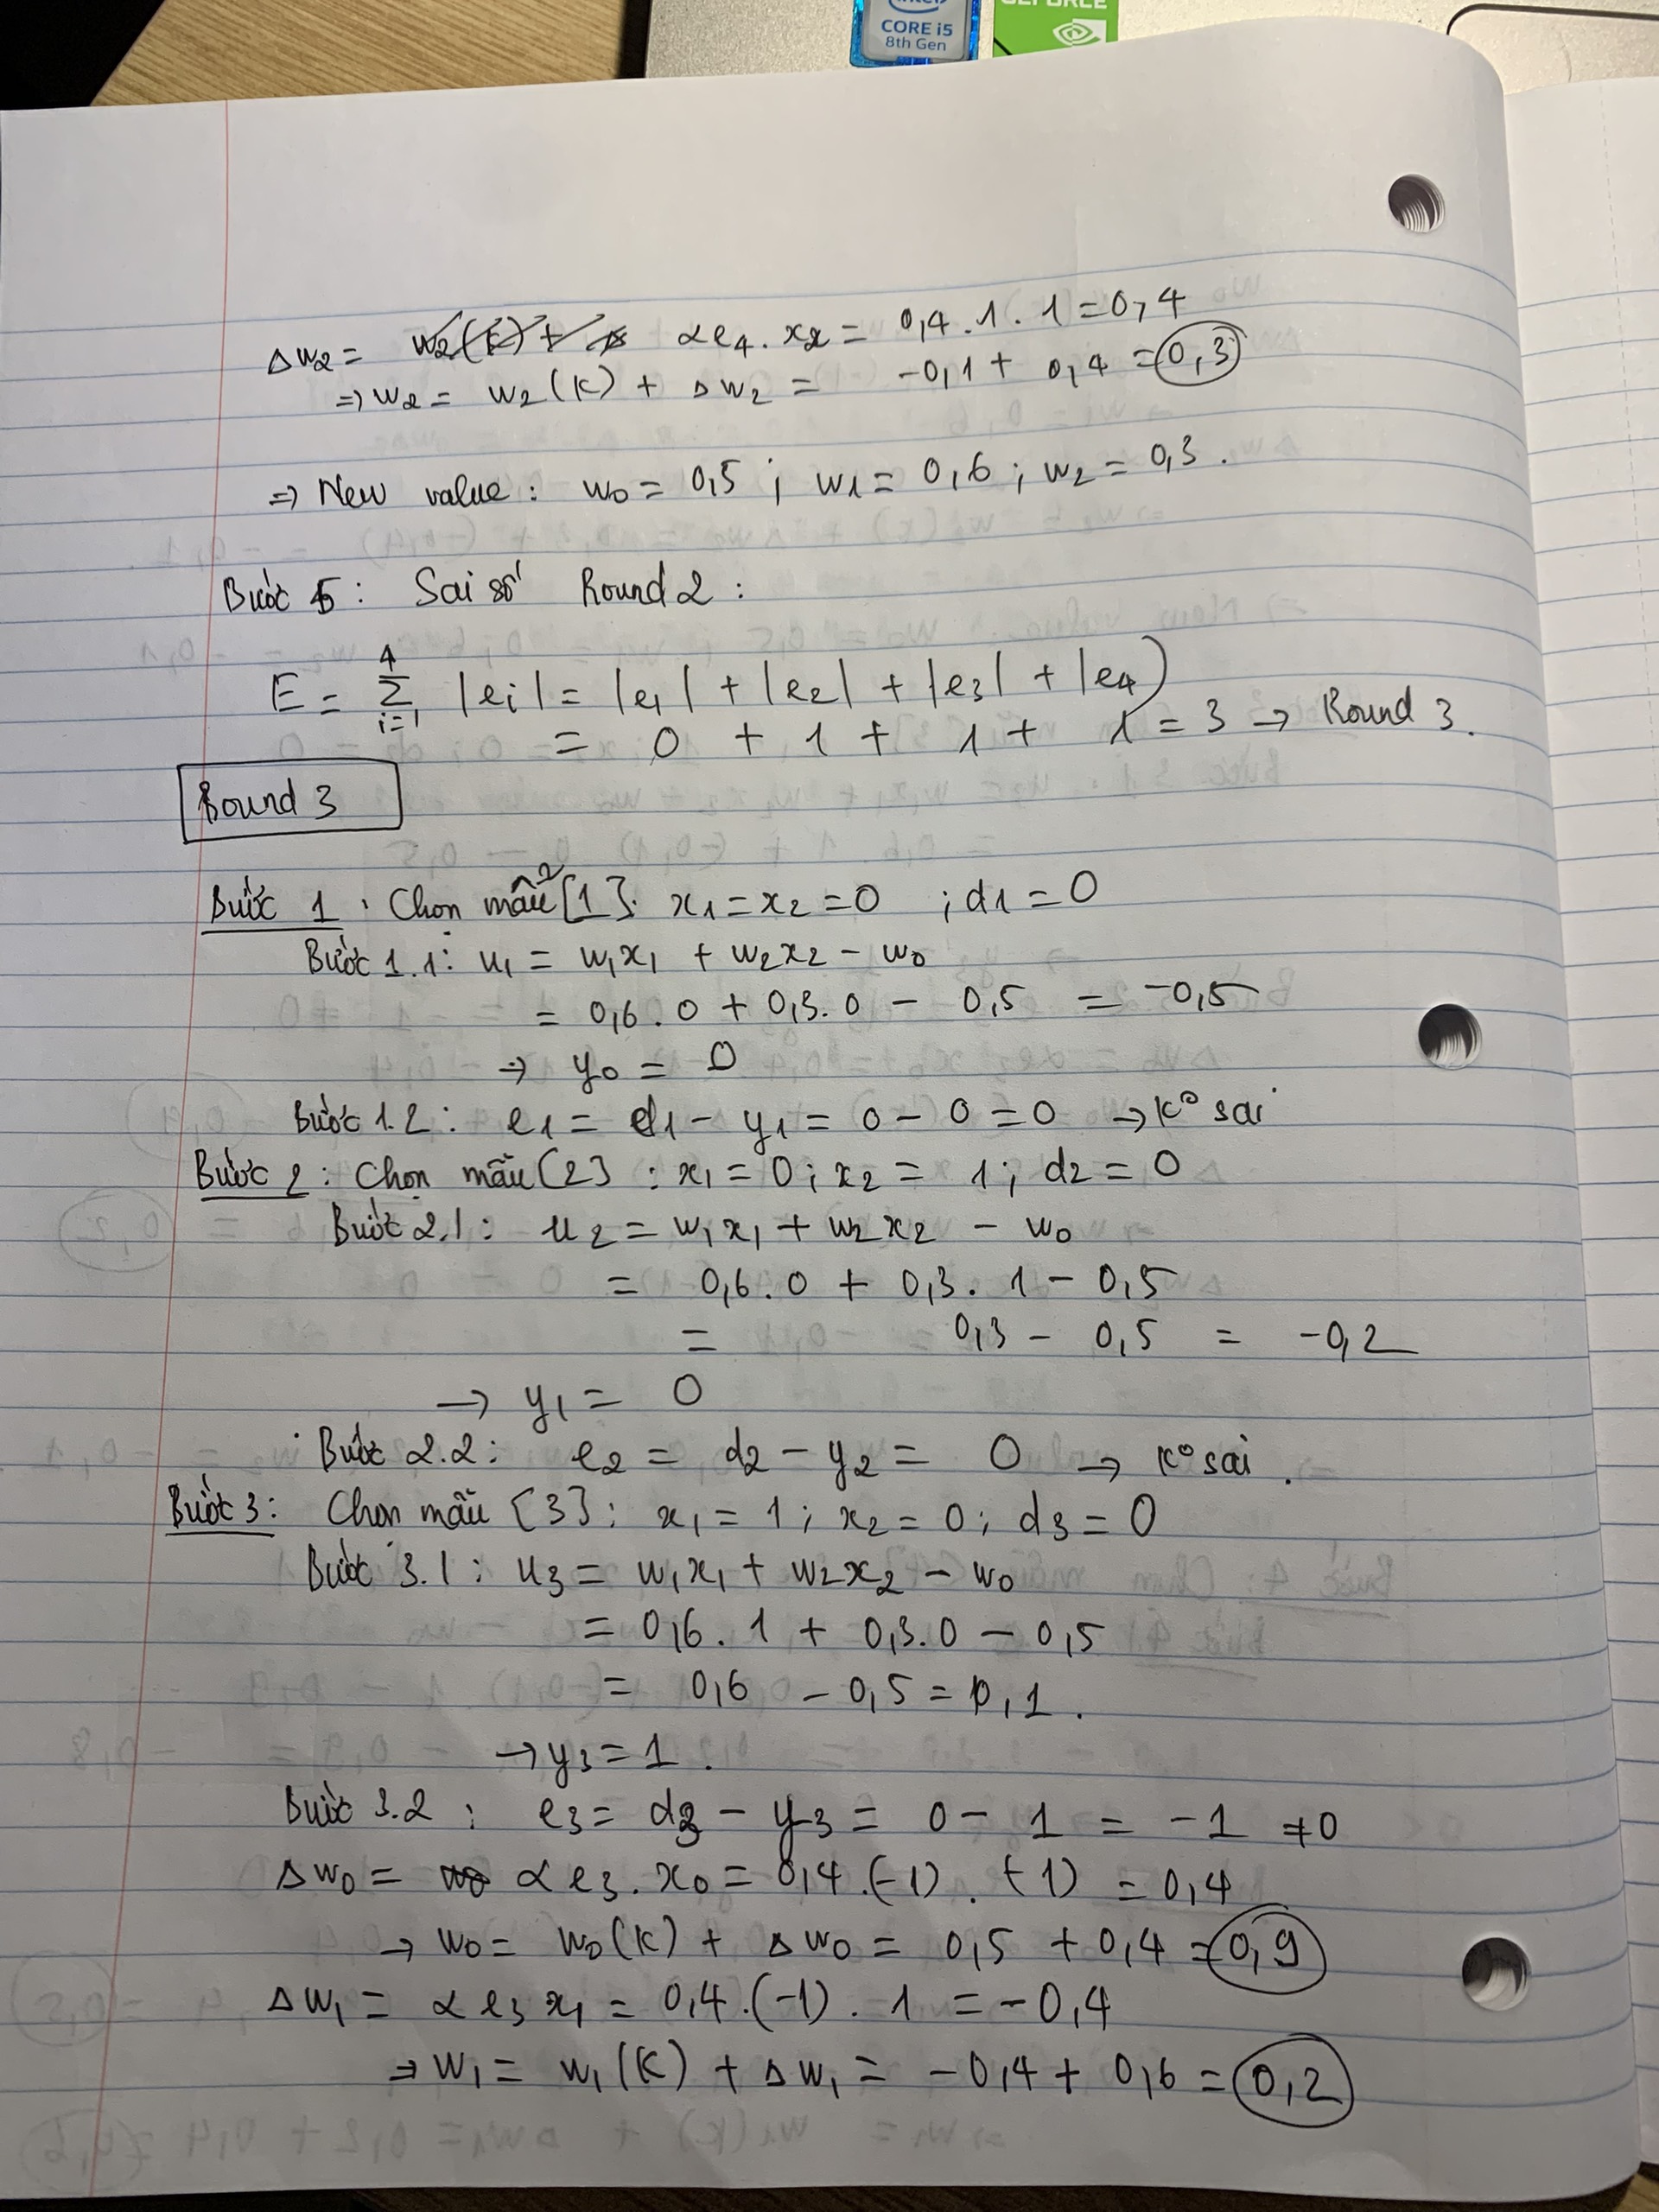 intel
CORE i5
8th Gen
GEFORCE
Δw2 = αe4. x2 = 0,4 . 1 . 1 = 0,4
⇒ w2 = w2(k) + Δw2 = -0,1 + 0,4 = 0,3
⇒ New value: w0 = 0,5 ; w1 = 0,6 ; w2 = 0,3.
Bước 5: Sai số Round 2:
E = Σ(i=1, 4) |ei| = |e1| + |e2| + |e3| + |e4|
= 0 + 1 + 1 + 1 = 3 → Round 3.
Round 3
Bước 1: Chọn mẫu [1]: x1 = x2 = 0 ; d1 = 0
Bước 1.1: u1 = w1x1 + w2x2 - w0
= 0,6 . 0 + 0,3. 0 - 0,5 = -0,5
→ y0 = 0
Bước 1.2: e1 = d1 - y1 = 0 - 0 = 0 → k° sai
Bước 2: Chọn mẫu [2]: x1 = 0; x2 = 1; d2 = 0
Bước 2.1: u2 = w1x1 + w2x2 - w0
= 0,6. 0 + 0,3. 1 - 0,5
= 0,3 - 0,5 = -0,2
→ y1 = 0
Bước 2.2: e2 = d2 - y2 = 0 → k° sai.
Bước 3: Chọn mẫu [3]: x1 = 1; x2 = 0; d3 = 0
Bước 3.1: u3 = w1x1 + w2x2 - w0
= 0,6. 1 + 0,3. 0 - 0,5
= 0,6 - 0,5 = 0,1.
→ y3 = 1.
Bước 3.2: e3 = d3 - y3 = 0 - 1 = -1 ≠ 0
Δw0 = αe3. x0 = 0,4.(-1). (-1) = 0,4
→ w0 = w0(k) + Δw0 = 0,5 + 0,4 = 0,9
Δw1 = αe3x1 = 0,4.(-1). 1 = -0,4
⇒ w1 = w1(k) + Δw1 = -0,4 + 0,6 = 0,2